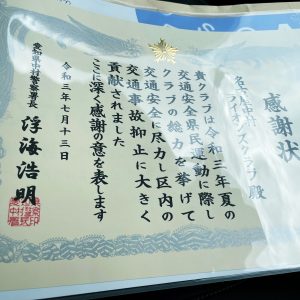 感謝状
ライオンズクラブ殿
貴クラブは令和三年夏の
交通安全県民運動に際し
クラブの総力を挙げて
交通安全に尽力し区内の
交通事故抑止に大きく
貢献されました
ここに深く感謝の意を表します
令和三年七月十三日
愛知県中村警察署長
浮海浩明